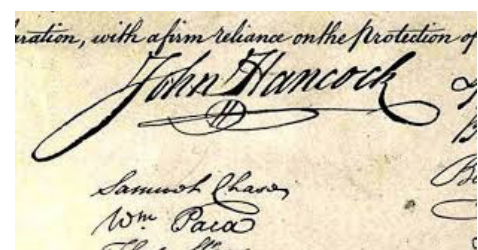 ration, with a firm reliance on the Protection of
John Hancock
Samuel Chase
Wm Paca